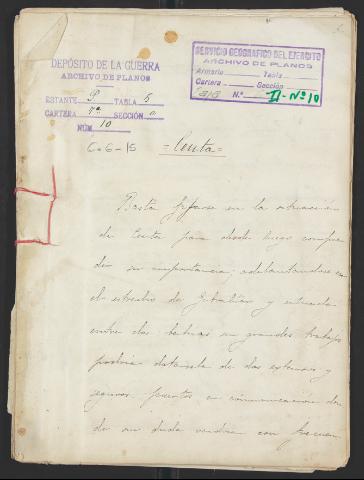 DEPÓSITO DE LA GUERRA
ARCHIVO DE PLANOS
ESTANTE P TABLA 5
CARTERA 7ª SECCIÓN a
NÚM. 10
C-6-15
SERVICIO GEOGRAFICO DEL EJERCITO
ARCHIVO DE PLANOS
Armario Tabla
Cartera Sección
Nº II-Nº10
=Ceuta=
Basta fijarse en la situación
de Ceuta para desde luego compren
der su importancia; adelantándose en
el estrecho de Gibraltar y situada
entre dos bahias sin grandes trabajos
podria dotarsela de dos extensos y
seguros puertos en comunicación don
de sin duda vendrian con frecuen